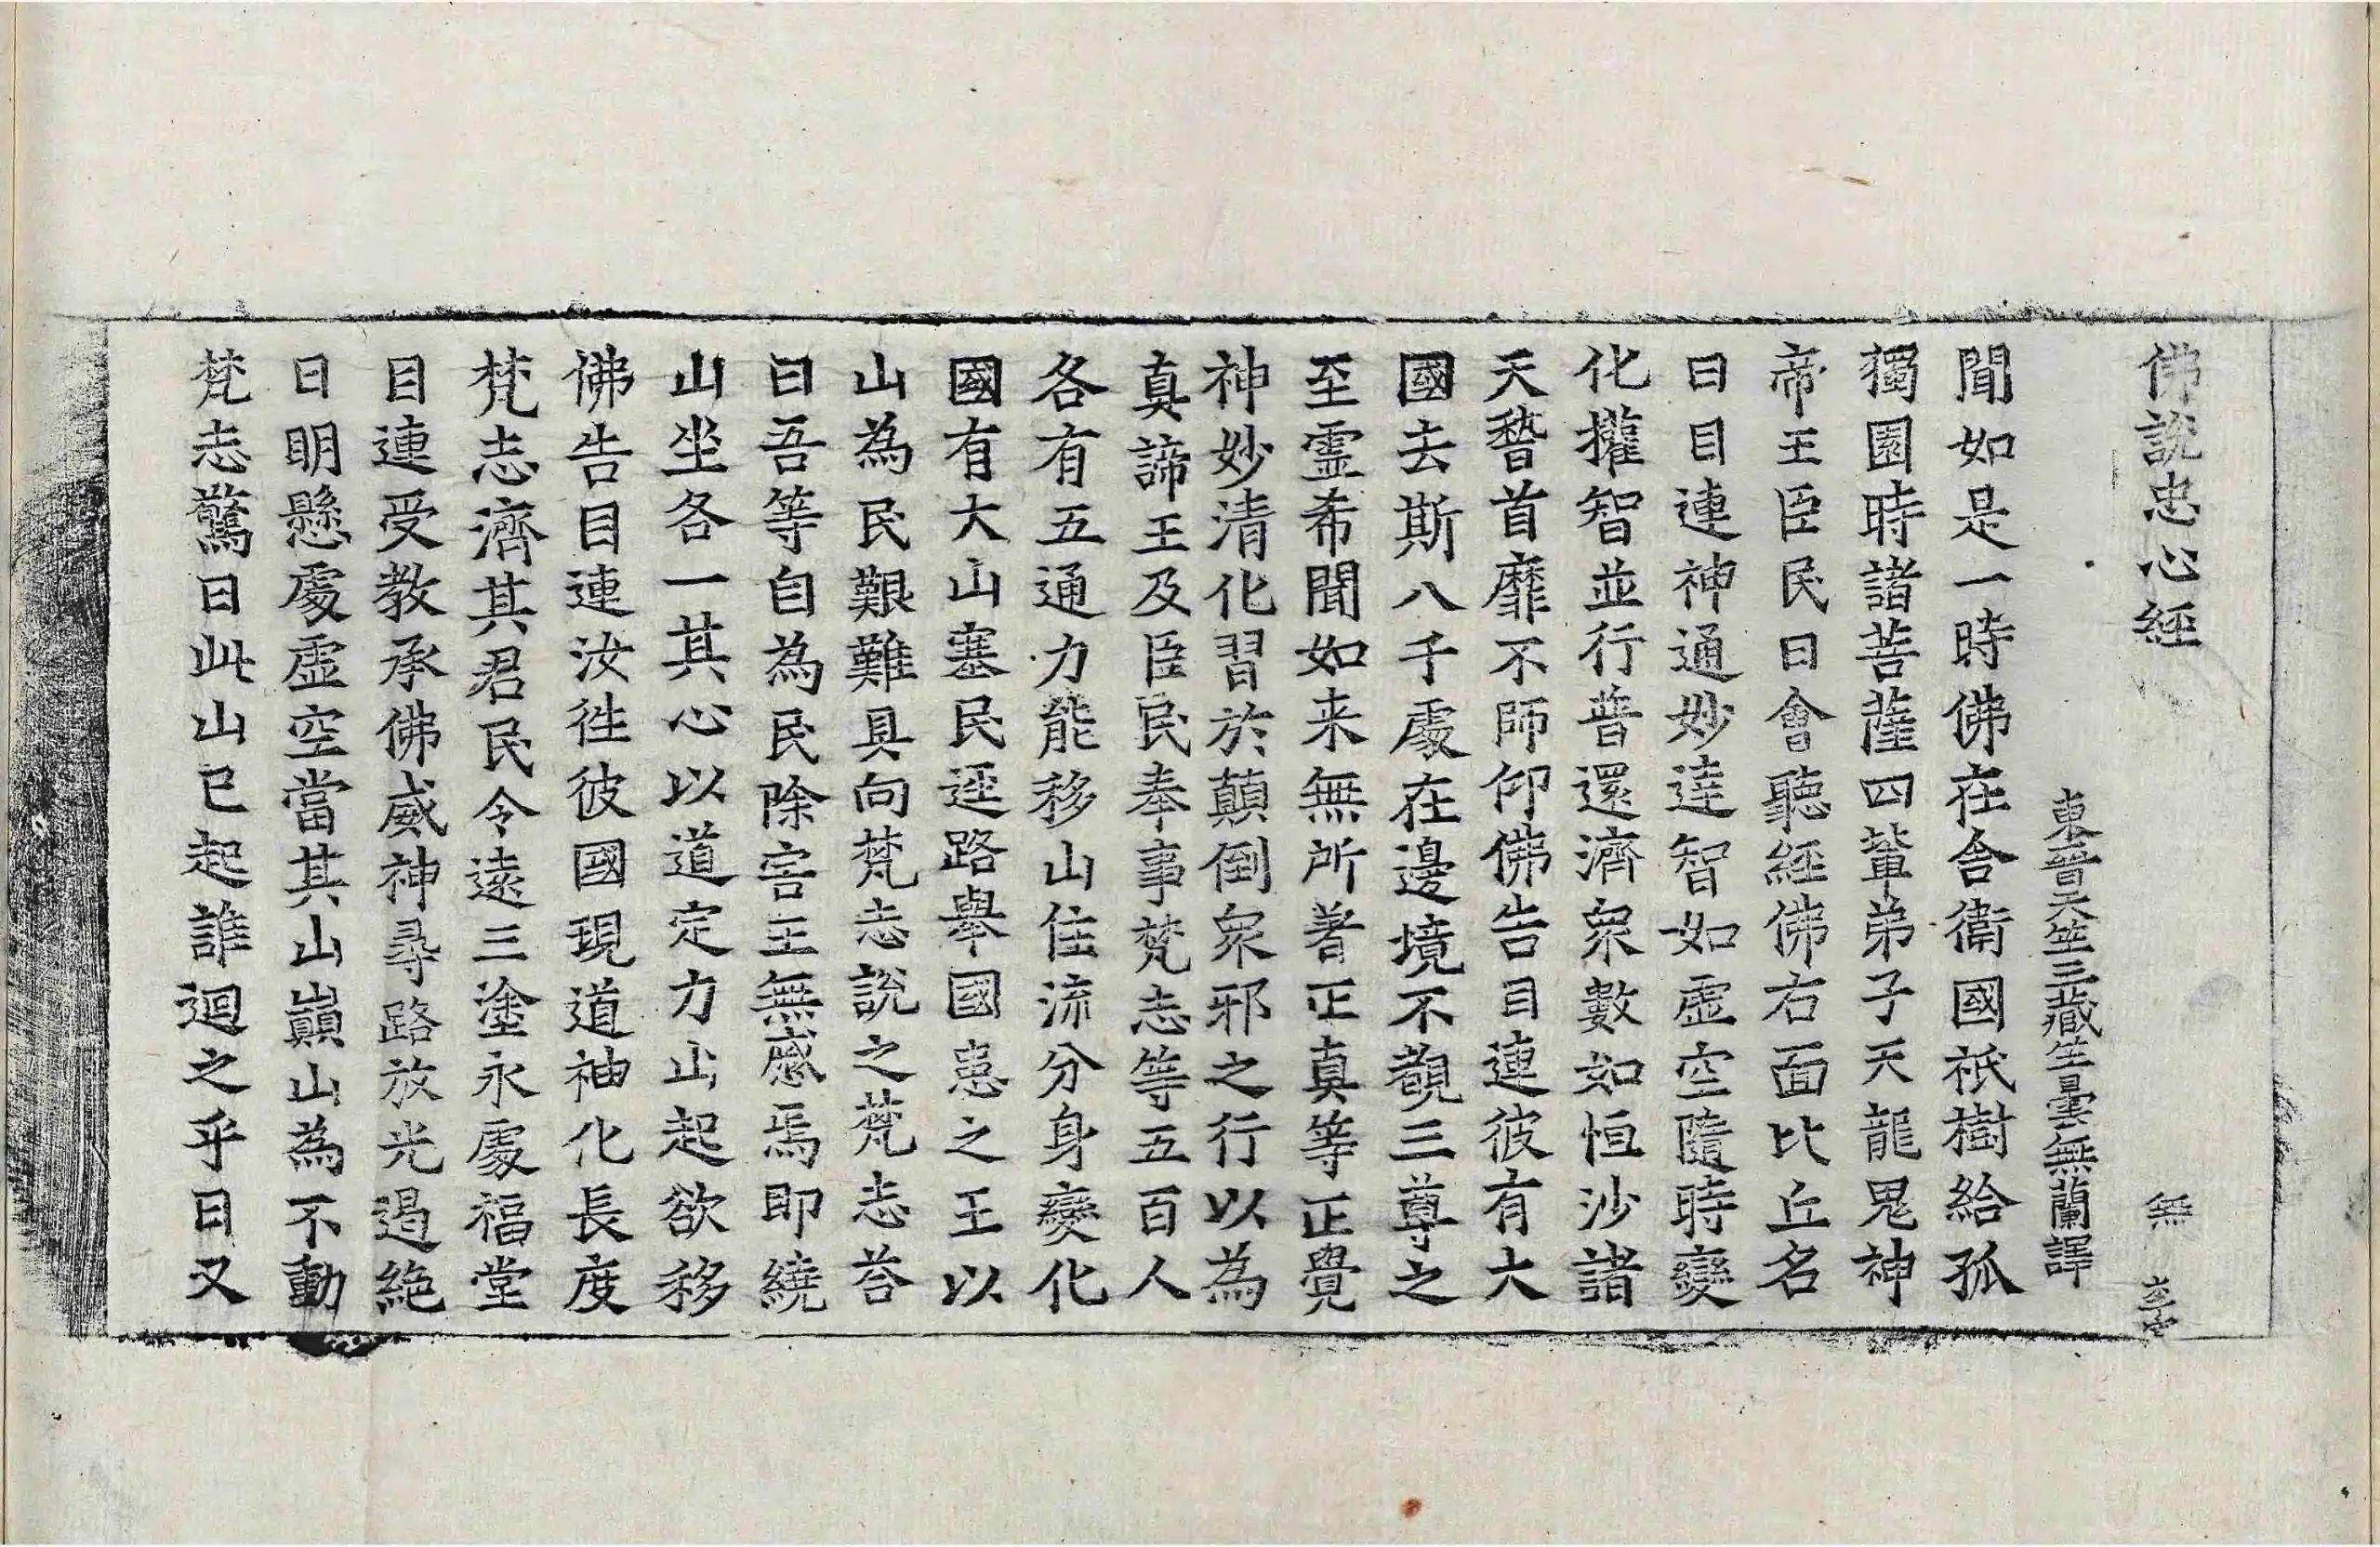 佛說忠心經 無
東晉天竺三藏竺曇無蘭譯
聞如是一時佛在舍衛國祇樹給孤
獨園時諸菩薩四輩弟子天龍鬼神
帝王臣民日會聽經佛右面比丘名
曰目連神通妙達智如虛空隨時變
化權智並行普還濟眾數如恒沙諸
天稽首靡不師仰佛告目連彼有大
國去斯八千處在邊境不覩三尊之
至靈希聞如来無所著正真等正覺
神妙清化習於顛倒眾邪之行以為
真諦王及臣民奉事梵志等五百人
各有五通力能移山住流分身變化
國有大山塞民逕路舉國患之王以
山為民艱難具向梵志說之梵志荅
曰吾等自為民除害王無慼焉即繞
山坐各一其心以道定力山起欲移
佛告目連汝徃彼國現道神化長度
梵志濟其君民令遠三塗永處福堂
目連受教承佛威神尋路放光遏絕
日明懸處虛空當其山巔山為不動
梵志驚曰此山已起誰迴之乎曰又